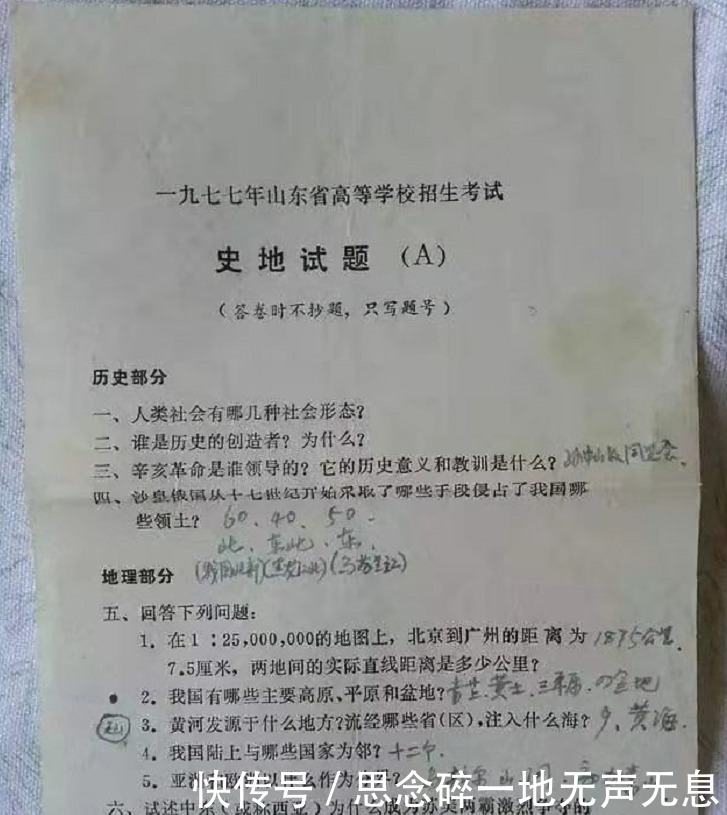 一九七七年山东省高等学校招生考试
史地试题（A）
（答卷时不抄题，只写题号）
历史部分
一、人类社会有哪几种社会形态？
二、谁是历史的创造者？为什么？
三、辛亥革命是谁领导的？它的历史意义和教训是什么？
四、沙皇俄国从十七世纪开始采取了哪些手段侵占了我国哪
些领土？ 60、40、50
北、东北、东
地理部分
五、回答下列问题：
1. 在1：25,000,000的地图上，北京到广州的距离为 1875公里
7.5厘米，两地间的实际直线距离是多少公里？
2. 我国有哪些主要高原、平原和盆地？
3. 黄河发源于什么地方？流经哪些省(区)，注入什么海？ 9、黄海
4. 我国陆上与哪些国家为邻？ 十二个
5. 亚洲
快传号 / 思念碎一地无声无息
六、试述中东（或称西亚）为什么成为苏美两霸激烈争夺的